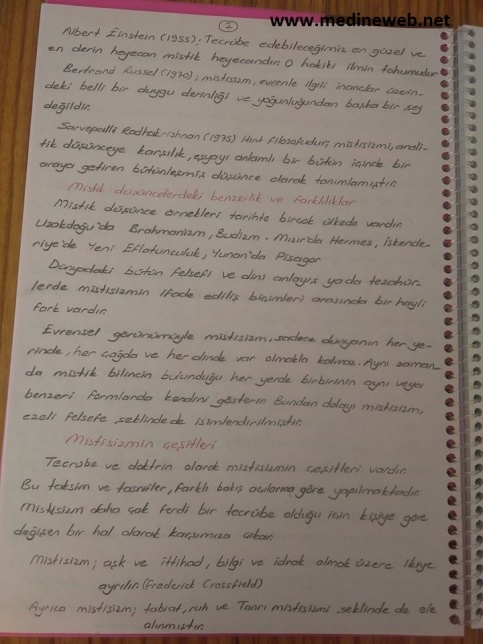 www.medineweb.net
2
Albert Einstein (1955); Tecrübe edebileceğimiz en güzel ve
en derin heyecan mistik heyecandır. O hakiki ilmin tohumudur
Bertrand Russel (1970); mistisizm, evrenle ilgili inançlar üzerin-
deki belli bir duygu derinliği ve yoğunluğundan başka bir şey
değildir.
Sarvepalli Radhakrishnan (1975) Hint filozofudur, mistisizmi, anali-
tik düşünceye karşılık, eşyayı anlamlı bir bütün içinde bir
araya getiren bütünleşmiş düşünce olarak tanımlamıştır.
Mistik düşüncelerdeki benzerlik ve farklılıklar
Mistik düşünce örnekleri tarihte birçok ülkede vardır.
Uzakdoğu'da Brahmanizm, Budizm - Mısır'da Hermes, İskende-
riye'de Yeni Eflatunculuk, Yunan'da Pisagor
Dünyadaki bütün felsefi ve dini anlayış ya da tezahür-
lerde mistisizmin ifade ediliş biçimleri arasında bir hayli
fark vardır.
Evrensel görünümüyle mistisizm, sadece dünyanın her ye-
rinde, her çağda ve her dinde var olmakla kalmaz. Aynı zaman_
da mistik bilincin bulunduğu her yerde birbirinin aynı veya
benzeri formlarda kendini gösterir. Bundan dolayı mistisizm,
ezeli felsefe şeklinde de isimlendirilmiştir.
Mistisizmin çeşitleri
Tecrübe ve doktrin olarak mistisizmin çeşitleri vardır.
Bu taksim ve tasnifler, farklı bakış açılarına göre yapılmaktadır.
Mistisizm daha çok ferdi bir tecrübe olduğu için kişiye göre
değişen bir hal olarak karşımıza çıkar.
Mistisizm; aşk ve ittihad, bilgi ve idrak olmak üzere ikiye
ayrılır. (Frederick Crossfield)
Ayrıca mistisizm; tabiat, ruh ve Tanrı mistisizmi, şeklinde de ele
alınmıştır.